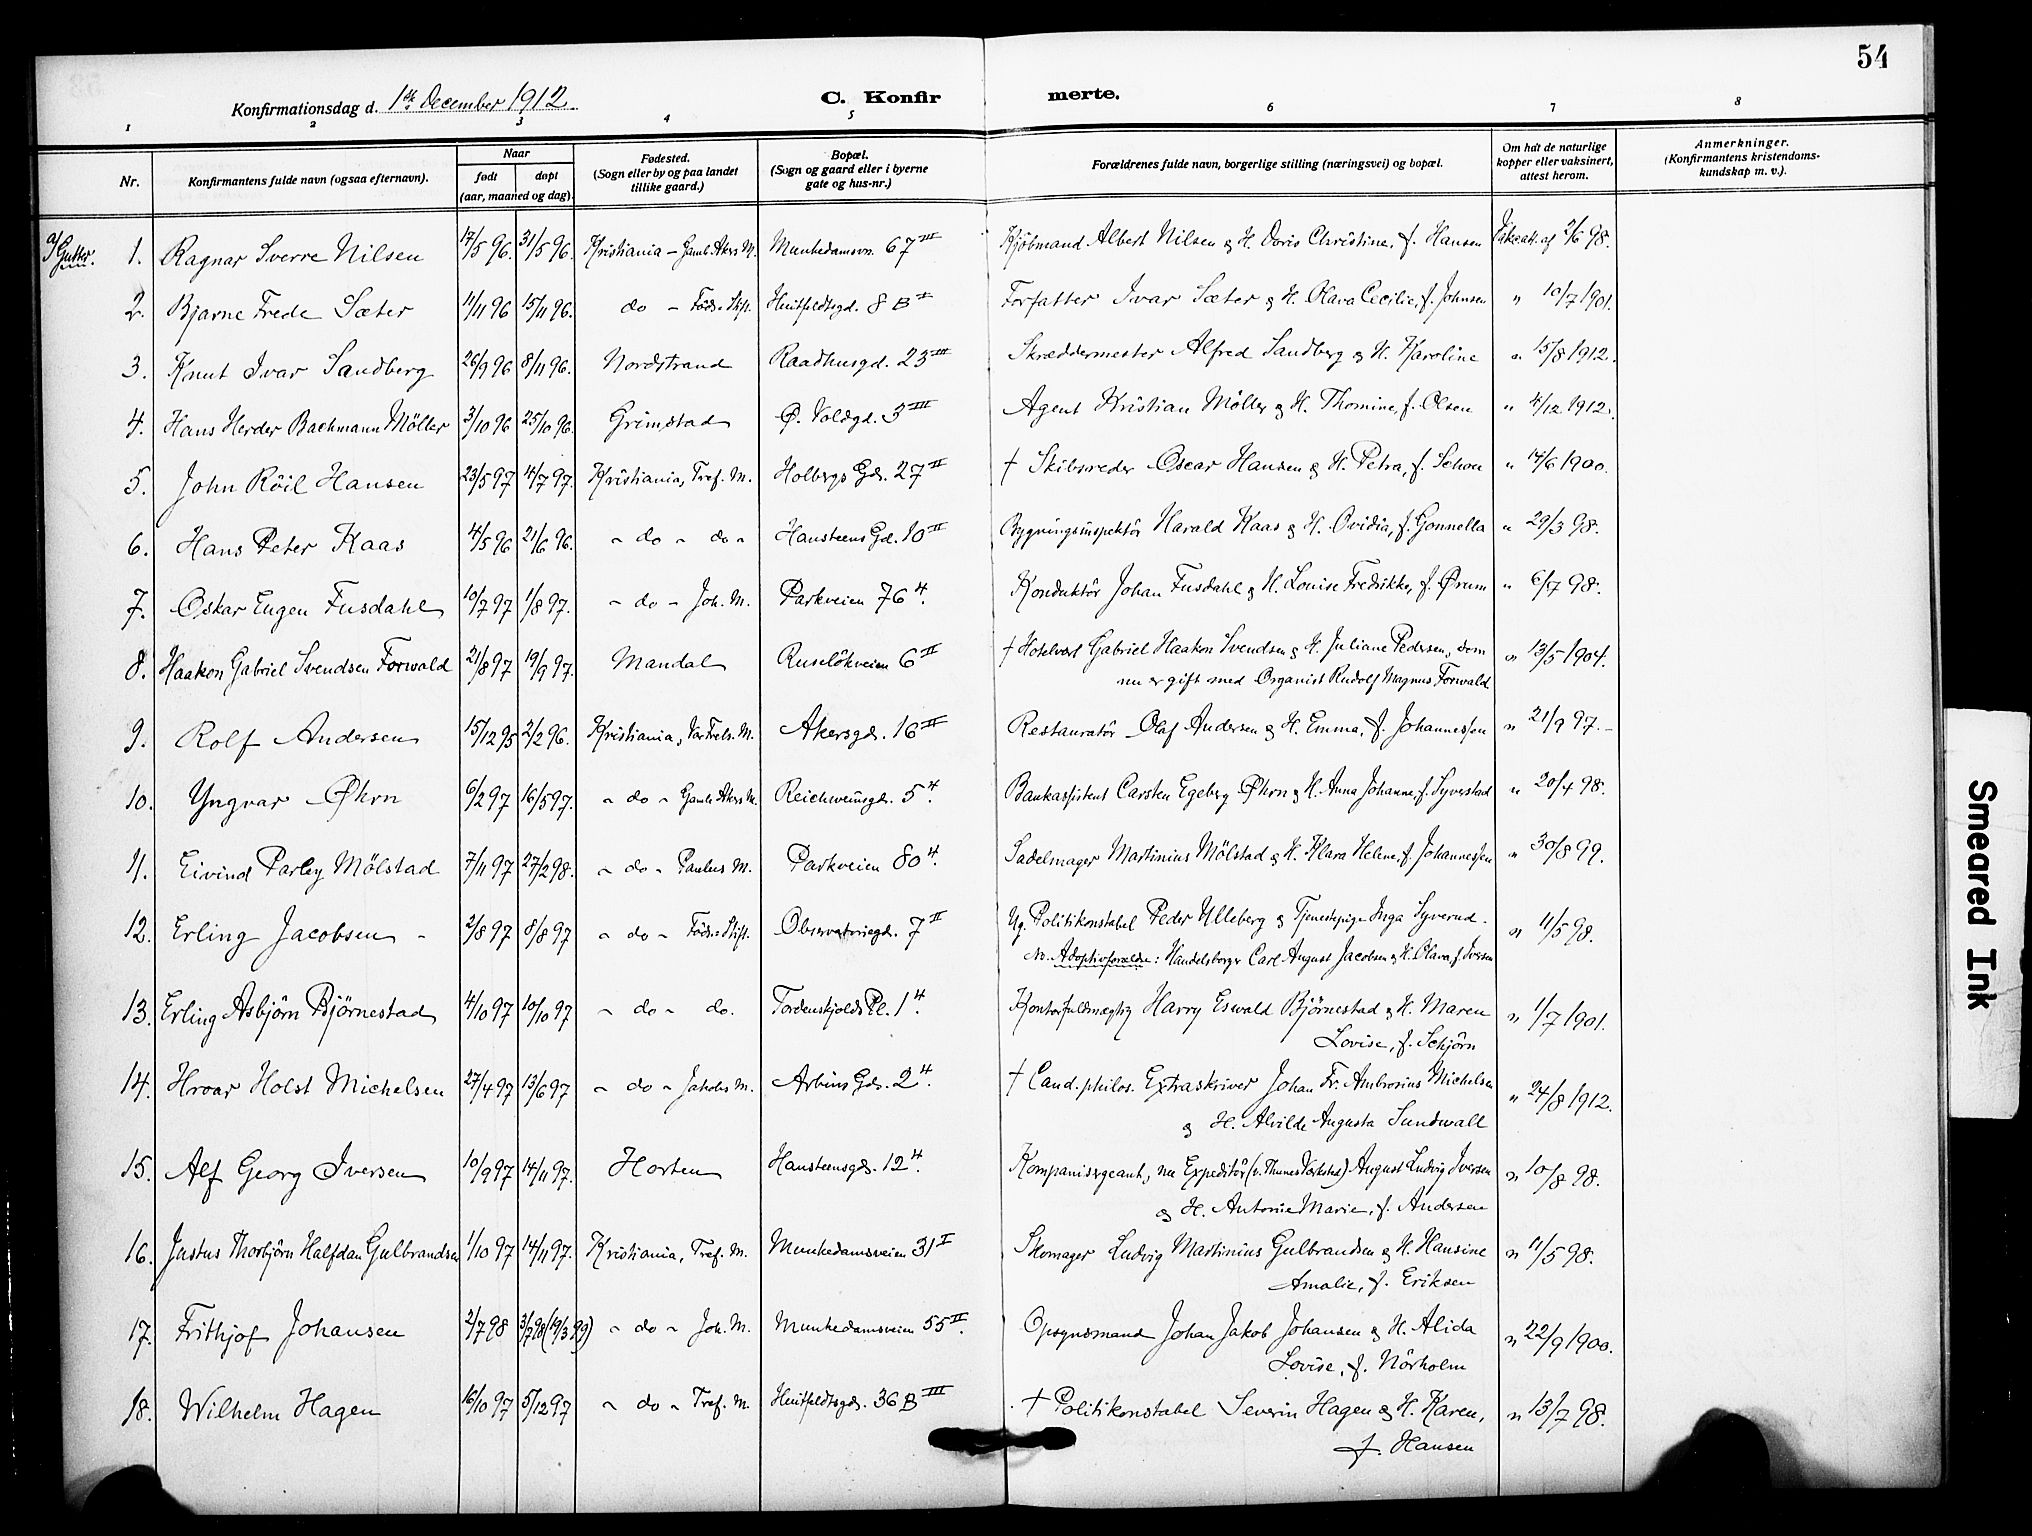 54
Konfirmationsdag d. 1ste December 1912.
C. Konfirmerte.
1 2 3 4 5 6 7 8
Nr.
Konfirmantens fulde navn (ogsaa efternavn).
Naar
født
døpt
(aar, maaned og dag).
Fødested.
(Sogn eller by og paa landet
tillike gaard.)
Bopæl.
(Sogn og gaard eller i byerne
gate og hus-nr.)
Forældrenes fulde navn, borgerlige stilling (næringsvei) og bopæl.
Om hat de naturlige
kopper eller vaksinert,
attest herom.
Anmerkninger.
(Konfirmantens kristendoms-
kundskap m. v.).
a/ Gutter.
1. Ragnar Sverre Nilsen 17/5 96. 31/5 96. Kristiania - Gamle Akers M. Munkedamsvn. 67 III Kjøbmand Albert Nilsen & H. Doris Christine, f. Hansen 2/6 98.
2. Bjarne Frede Sæter 11/11 96 15/11 96. do - Føds. Stift. Huitfeldtsgd. 8 B I Forfatter Ivar Sæter & H. Olava Cecilie, f. Johnsen " 10/7 1901.
3. Knut Ivar Sandberg 26/9 96 8/11 96. Nordstrand Raadhusgd. 23 III Skræddermester Alfred Sandberg & H. Karoline " 15/8 1912.
4. Hans Herder Bachmann Möller 3/10 96 25/10 96. Grimstad Ø. Voldgd. 3 III Agent Kristian Möller & H. Thomine, f. Olsen " 4/12 1912.
5. John Röil Hansen 23/5 97 4/7 97. Kristiania, Tref. M. Holbergs Gd. 27 II † Skibsreder Oscar Hansen & H. Petra, f. Schou " 14/6 1900.
6. Hans Peter Kaas 4/5 96 21/6 96. " do " do " Hansteens Gd. 10 II Bygningsinspektör Harald Kaas & H. Ovidia, f. Gonnella " 29/3 98.
7. Oskar Eugen Fusdahl 10/7 97 1/8 97. " do " Joh. M. Parkveien 76 4. Konduktör Johan Fusdahl & H. Louise Fredrikke, f. Ørum " 6/7 98.
8. Haakon Gabriel Svendsen Forwald 21/8 97 19/9 97. Mandal Ruselökveien 6 II † Hotelvert Gabriel Haakon Svendsen & H. Juliane Pedersen, som " 13/5 1904.
nu er gift med Organist Rudolf Magnus Forwald
9. Rolf Andersen 15/12 95 2/2 96. Kristiania, Vor Frels. M. Akersgd. 16 II Restauratör Olaf Andersen & H. Emma, f. Johannessen " 21/9 97. -
10. Yngvar Øhrn 6/2 97 16/5 97. " do " Gamle Akers M. Reichweinsgd. 5 4. Bankassistent Carsten Egeberg Øhrn & H. Anna Johanne, f. Syverstad " 20/4 98.
11. Eivind Parley Mölstad 7/11 97 27/2 98. " do " Paulus M. Parkveien 80 4. Sadelmager Martinius Mölstad & H. Klara Helene, f. Johannessen " 30/8 99.
12. Erling Jacobsen - 2/8 97 8/8 97 " do " Föds. Stift. Observatoriegd. 7 II Ug. Politikonstabel Peder Ulleberg & Tjenestepige Inga Syverud. " 11/5 98.
Nv. Adoptivforældre: Handelsborger Carl August Jacobsen & H. Olava, f. Iversen
13. Erling Asbjörn Björnestad 4/10 97 10/10 97 " do " do. Tordenskjolds Pl. 1 4. Kontorfuldmægtig Harry Eswald Björnestad & H. Maren " 1/7 1901.
Lovise, f. Schjörn
14. Hroar Holst Michelsen 27/4 97 13/6 97 " do " Jakobs M. Arbins Gd. 2 4. † Cand. philos. Extraskriver Johan Fr. Ambrosius Michelsen " 24/8 1912.
& H. Alvilde Augusta Sundwall
15. Alf Georg Iversen 10/9 97 14/11 97. Horten Hansteensgd. 12 4. Kompanisergeant, nu Expeditör (v. Thunes Værksted) August Ludvig Iversen " 10/8 98.
& H. Antonie Marie, f. Andersen
16. Justus Thorbjörn Halfdan Gulbrandsen 1/10 97 14/11 97. Kristiania, Tref. M. Munkedamsveien 31 I Skomager Ludvig Martinius Gulbrandsen & H. Hansine " 11/5 98.
Amalie, f. Eriksen
17. Frithjof Johansen 2/7 98 3/7 98 (19/3 99) " do " Joh. M. Munkedamsveien 55 II. Opsynsmand Johan Jakob Johansen & H. Alida " 22/9 1900.
Lovise, f. Nörholm
18. Wilhelm Hagen 16/10 97 5/12 97 " do " Tref. M. Huitfeldtsgd. 36 B III † Politikonstabel Severin Hagen & H. Karen, " 13/7 98.
f. Hansen
Smeared Ink